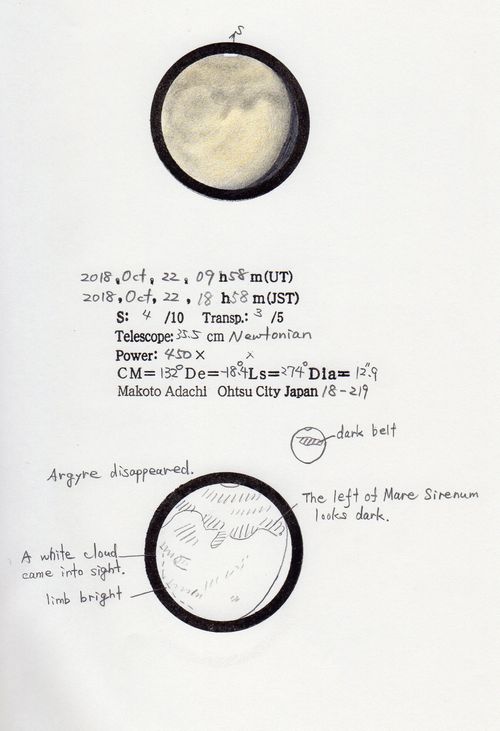 S
2018, Oct, 22, 09 h58 m(UT)
2018, Oct, 22, 18 h58 m(JST)
S: 4 /10 Transp.: 3 /5
Telescope: 35.5 cm Newtonian
Power: 450 ×
CM= 132° De=-18.°4 Ls=274° Dia= 12."9
Makoto Adachi Ohtsu City Japan 18-219
dark belt
Argyre disappeared.
The left of Mare Sirenum
looks dark.
A white cloud
came into sight.
limb bright